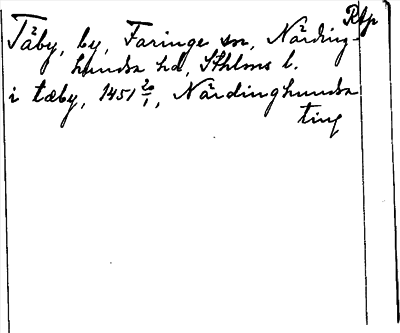 Rfp
Täby, by, Faringe sn, Närding-
hundra hd, Sthlms l.
i tæby, 1451 20/1, Närdinghundra
ting